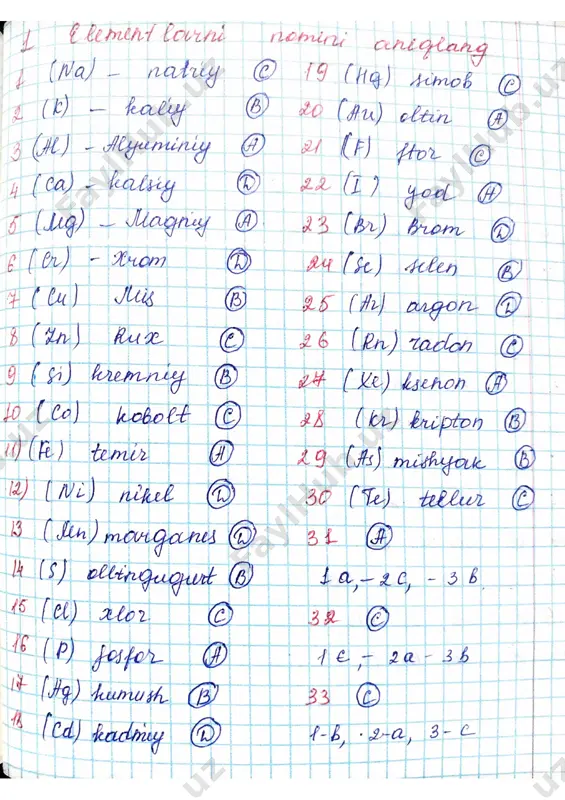 1 Elementlarni nomini aniqlang
1 (Na) - natriy C
2 (K) - kaliy B
3 (Al) - Alyuminiy A
4 (Ca) - kalsiy D
5 (Mg) - Magniy A
6 (Cr) - Xrom D
7 (Cu) Mis B
8 (Zn) Rux C
9 (Si) kremniy B
10 (Co) kobolt C
11) (Fe) temir A
12) (Ni) nikel D
13 (Mn) marganes D
14 (S) oltingugurt B
15 (Cl) xlor C
16 (P) fosfor A
17 (Ag) kumush B
18 (Cd) kadmiy D
19 (Hg) simob C
20 (Au) oltin A
21 (F) ftor C
22 (I) yod A
23 (Br) Brom D
24 (Se) selen B
25 (Ar) argon D
26 (Rn) radon C
27 (Xe) ksenon A
28 (Kr) kripton B
29 (As) mishyak B
30 (Te) tellur C
31 A
1a, - 2c, - 3b
32 C
1c, - 2a - 3b
33 C
1-b, 2-a, 3-c
FaylHub.uz
FaylHub.uz
FaylHub.uz